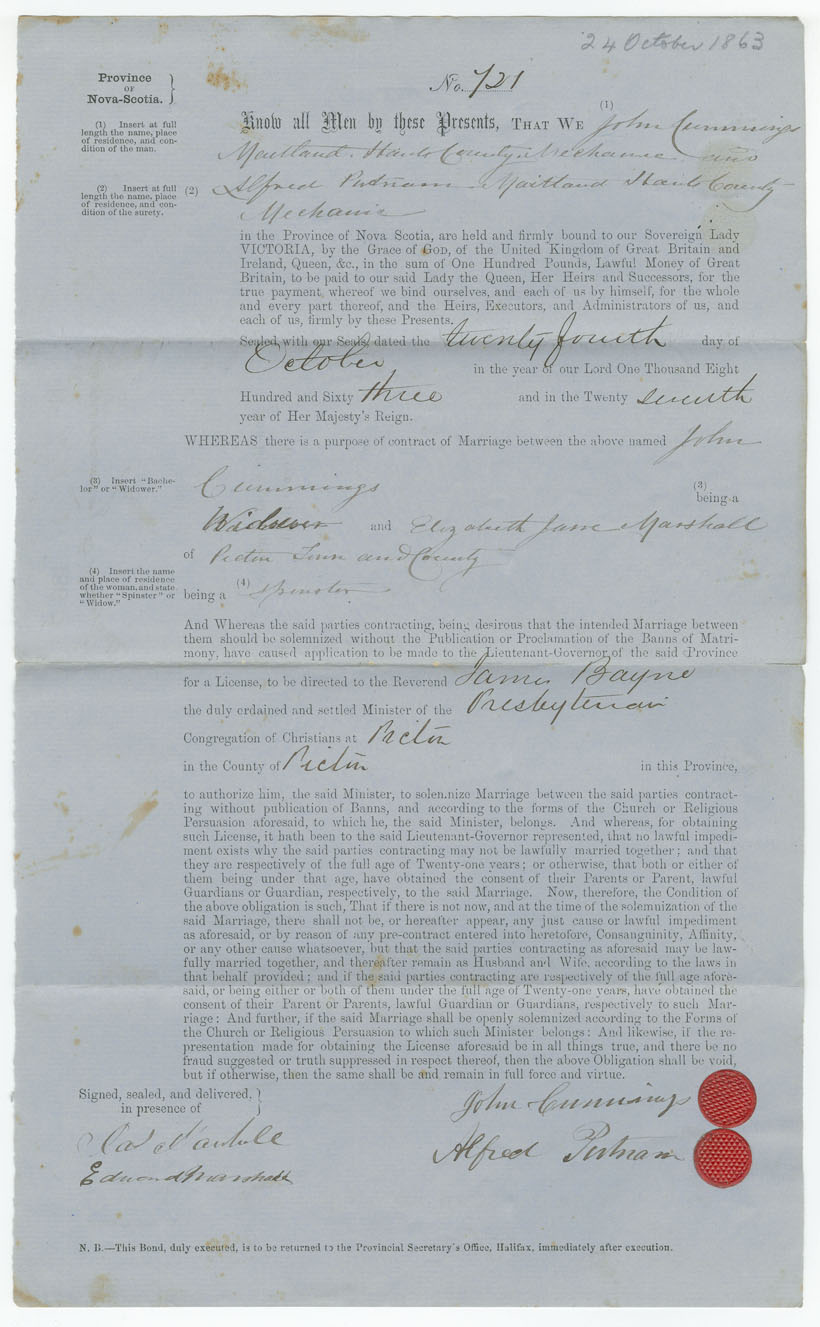 24 October 1863
Province
OF
Nova-Scotia.
No. 721
(1) Insert at full
length the name, place
of residence, and con-
dition of the man.
(1)
Know all Men by these Presents, THAT WE John Cummings
Maitland. Hants County Mechanic and
(2) Insert at full
length the name, place
of residence, and con-
dition of the surety.
(2) Alfred Putnam Maitland Hants County
Mechanic
in the Province of Nova Scotia, are held and firmly bound to our Sovereign Lady
VICTORIA, by the Grace of GOD, of the United Kingdom of Great Britain and
Ireland, Queen, &c., in the sum of One Hundred Pounds, Lawful Money of Great
Britain, to be paid to our said Lady the Queen, Her Heirs and Successors, for the
true payment whereof we bind ourselves, and each of us by himself, for the whole
and every part thereof, and the Heirs, Executors, and Administrators of us, and
each of us, firmly by these Presents.
Sealed with our Seals, dated the twenty fourth day of
October in the year of our Lord One Thousand Eight
Hundred and Sixty three and in the Twenty seventh
year of Her Majesty's Reign.
WHEREAS there is a purpose of contract of Marriage between the above named John
(3) Insert "Bache-
lor" or "Widower."
Cummings (3)
being a
Widower and Elizabeth Jane Marshall
of Pictou Town and County
(4) Insert the name
and place of residence
of the woman, and state
whether "Spinster" or
"Widow."
being a (4) Spinster
And Whereas the said parties contracting, being desirous that the intended Marriage between
them should be solemnized without the Publication or Proclamation of the Banns of Matri-
mony, have caused application to be made to the Lieutenant-Governor of the said Province
for a License, to be directed to the Reverend James Bayne
the duly ordained and settled Minister of the Presbyterian
Congregation of Christians at Pictou
in the County of Pictou in this Province,
to authorize him, the said Minister, to solemnize Marriage between the said parties contract-
ing without publication of Banns, and according to the forms of the Church or Religious
Persuasion aforesaid, to which he, the said Minister, belongs. And whereas, for obtaining
such License, it hath been to the said Lieutenant-Governor represented, that no lawful impedi-
ment exists why the said parties contracting may not be lawfully married together; and that
they are respectively of the full age of Twenty-one years; or otherwise, that both or either of
them being under that age, have obtained the consent of their Parents or Parent, lawful
Guardians or Guardian, respectively, to the said Marriage. Now, therefore, the Condition of
the above obligation is such, That if there is not now, and at the time of the solemnization of the
said Marriage, there shall not be, or hereafter appear, any just cause or lawful impediment
as aforesaid, or by reason of any pre-contract entered into heretofore, Consanguinity, Affinity,
or any other cause whatsoever, but that the said parties contracting as aforesaid may be law-
fully married together, and thereafter remain as Husband and Wife, according to the laws in
that behalf provided; and if the said parties contracting are respectively of the full age afore-
said, or being either or both of them under the full age of Twenty-one years, have obtained the
consent of their Parent or Parents, lawful Guardian or Guardians, respectively to such Mar-
riage: And further, if the said Marriage shall be openly solemnized according to the Forms of
the Church or Religious Persuasion to which such Minister belongs: And likewise, if the re-
presentation made for obtaining the License aforesaid be in all things true, and there be no
fraud suggested or truth suppressed in respect thereof, then the above Obligation shall be void,
but if otherwise, then the same shall be and remain in full force and virtue.
Signed, sealed, and delivered,
in presence of
John Cummings
Alfred Putnam
Edmond Marshall
N. B.—This Bond, duly executed, is to be returned to the Provincial Secretary's Office, Halifax, immediately after execution.